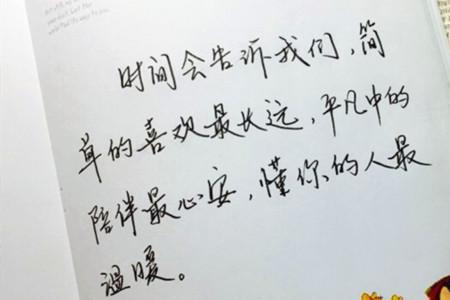 时间会告诉我们,简
单的喜欢最长远,平凡中的
陪伴最心安,懂你的人最
温暖。